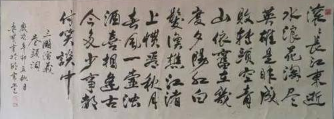 滾〻長江東逝
水浪花淘盡
英雄是非成
敗轉頭空青
山依舊在幾
度夕陽紅白
髮漁樵江渚
上慣看秋月
春風一壺濁
酒喜相逢古
今多少事都
付笑談中
三國演義
卷頭詞